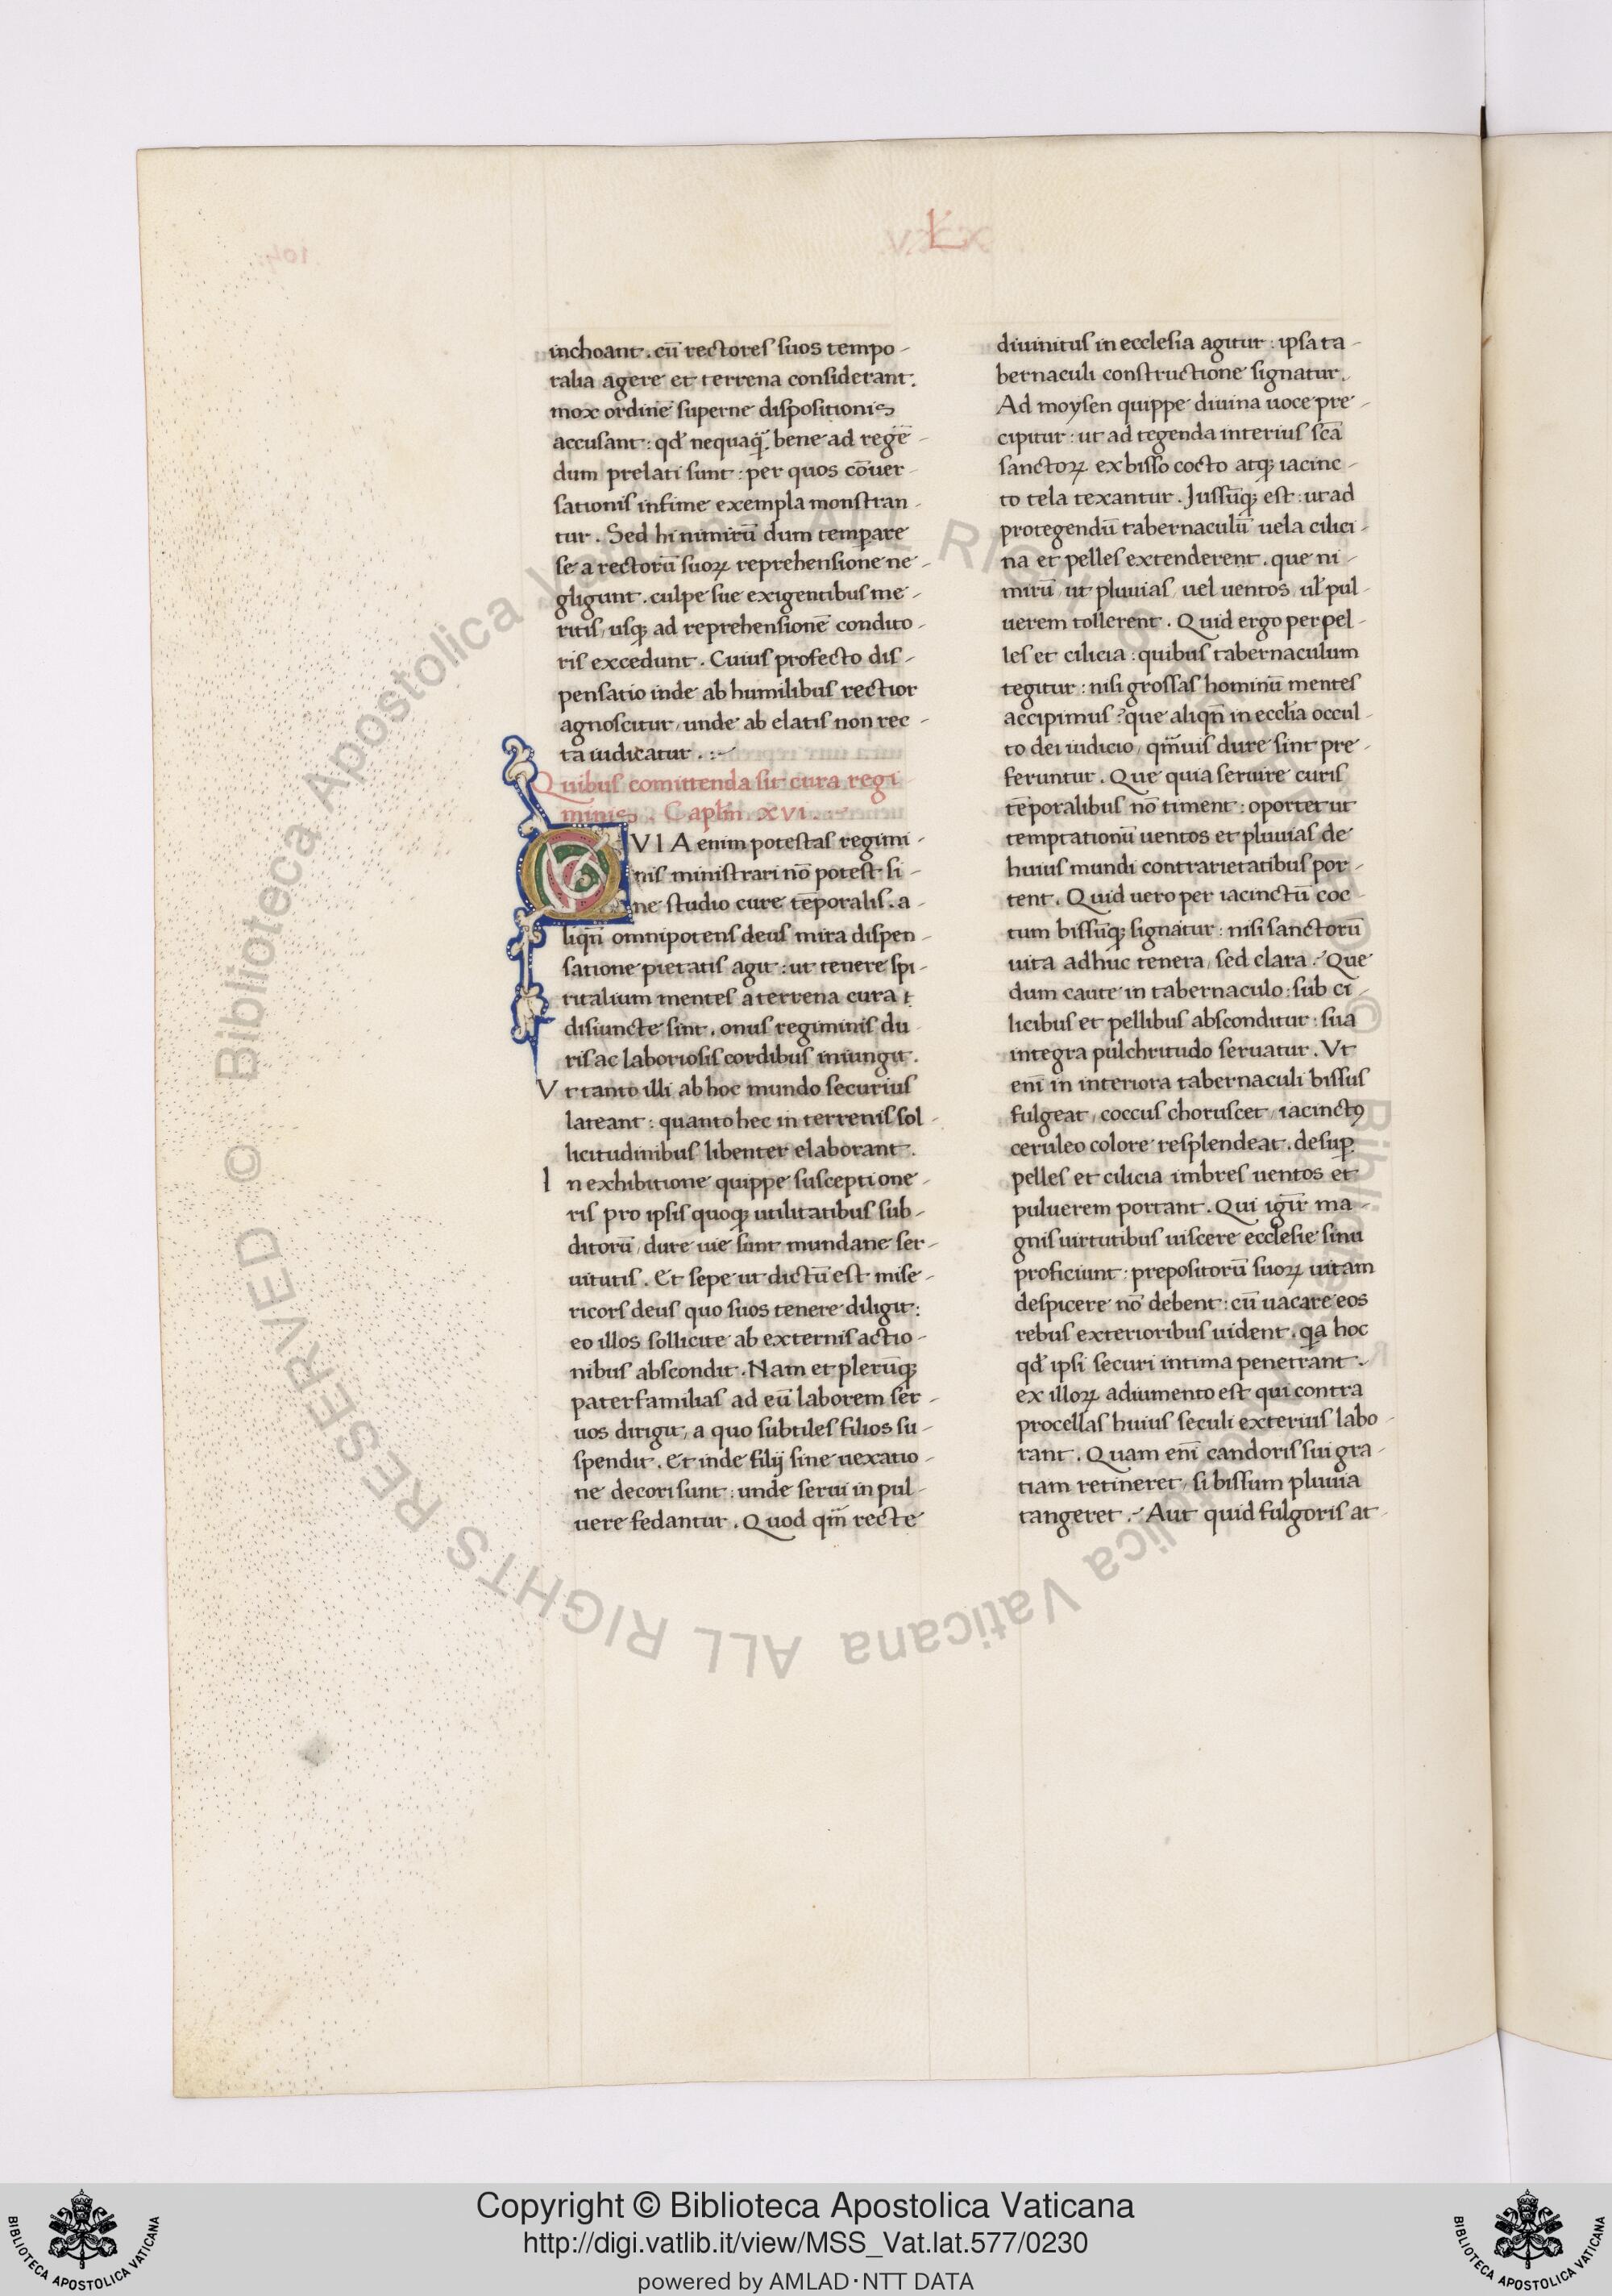 Ł
inchoant. cū rectores suos tempo-
ralia agere et terrena considerant.
mox ordinē superne dispositionis
accusant: qđ nequaq̈ bene ad regē-
dum prelati sunt: per quos cōuer-
sationis infime exempla monstran-
tur. Sed hi nimirū dum temperare
se a rectorū suoꝝ reprehensione ne-
gligunt. culpe sue exigentibus me-
ritis/ usqꝫ ad reprehensionē condito-
ris excedunt. Cuius profecto dis-
pensatio inde ab humilibus rectior
agnoscitur/ unde ab elatis non rec-
ta iudicatur.:~
Quibus comittenda sit cura regi
minis. Caplm̄ .xvi.
QVIA enim potestas regimi-
nis ministrari nō potest si-
ne studio cure tēporalis. a-
liqn̄ omnipotens deus mira dispen-
satione pietatis agit: ut tenere spi-
ritalium mentes a terrena cura
disiuncte sint. onus regiminis du
ris ac laboriosis cordibus iniungit.
Vt tanto illi ab hoc mundo securius
lateant: quanto hec in terrenis sol-
licitudinibus libenter elaborant.
In exhibitione quippe susceptione-
ris pro ipsis quoqꝫ utilitatibus sub-
ditorū/ dure uie sunt mundane ser-
uitutis. Et sepe ut dictū est mise-
ricors deus quo suos tenere diligit:
eo illos sollicite ab externis actio-
nibus abscondit. Nam et plerūqꝫ
paterfamilias ad eū laborem ser-
uos dirigit/ a quo subtiles filios su-
spendit. Et inde filij sine uexatio-
ne decori sunt: unde serui in pul-
uere fedantur. Quod qm̄ recte
diuinitus in ecclesia agitur: ipsa ta-
bernaculi constructione signatur.
Ad moysen quippe diuina uoce pre-
cipitur: ut ad tegenda interius scā
sanctoꝝ ex bisso cocto atqꝫ iacinc-
to tela texantur. Jussūqꝫ est: ut ad
protegendū tabernaculū uela cilici-
na et pelles extenderent. que ni-
mirū/ ut pluuias/ uel uentos/ ul' pul-
uerem tollerent. Quid ergo per pel-
les et cilicia: quibus tabernaculum
tegitur: nisi grossas hominū mentes
accipimus? que aliqn̄ in eccl'ia occul-
to dei iudicio/ qm̄uis dure sint pre-
feruntur. Que quia seruire curis
tēporalibus nō timent: oportet ut
temptationū uentos et pluuias de
huius mundi contrarietatibus por-
tent. Quid uero per iacinctū coc-
tum bissūqꝫ signatur: nisi sanctorū
uita adhuc tenera/ sed clara? Que
dum caute in tabernaculo: sub ci-
licibus et pellibus absconditur: sua
integra pulchritudo seruatur. Vt
enī in interiora tabernaculi bissus
fulgeat/ coccus choruscet/ iacinctꝯ
ceruleo colore resplendeat. desuꝑ
pelles et cilicia imbres uentos et
puluerem portant. Qui igīr ma-
gnis uirtutibus uiscere ecclesie sinu
proficiunt: prepositorū suoꝝ uitam
despicere nō debent: cū uacare eos
rebus exterioribus uident. qa hoc
qđ ipsi securi intima penetrant.
ex illoꝝ adiumento est qui contra
procellas huius seculi exterius labo-
rant. Quam enī candoris sui gra-
tiam retineret/ si bissum pluuia
tangeret? Aut quid fulgoris at-
© Biblioteca Apostolica Vaticana ALL RIGHTS RESERVED
Copyright © Biblioteca Apostolica Vaticana
http://digi.vatlib.it/view/MSS_Vat.lat.577/0230
powered by AMLAD·NTT DATA
BIBLIOTECA APOSTOLICA VATICANA
BIBLIOTECA APOSTOLICA VATICANA